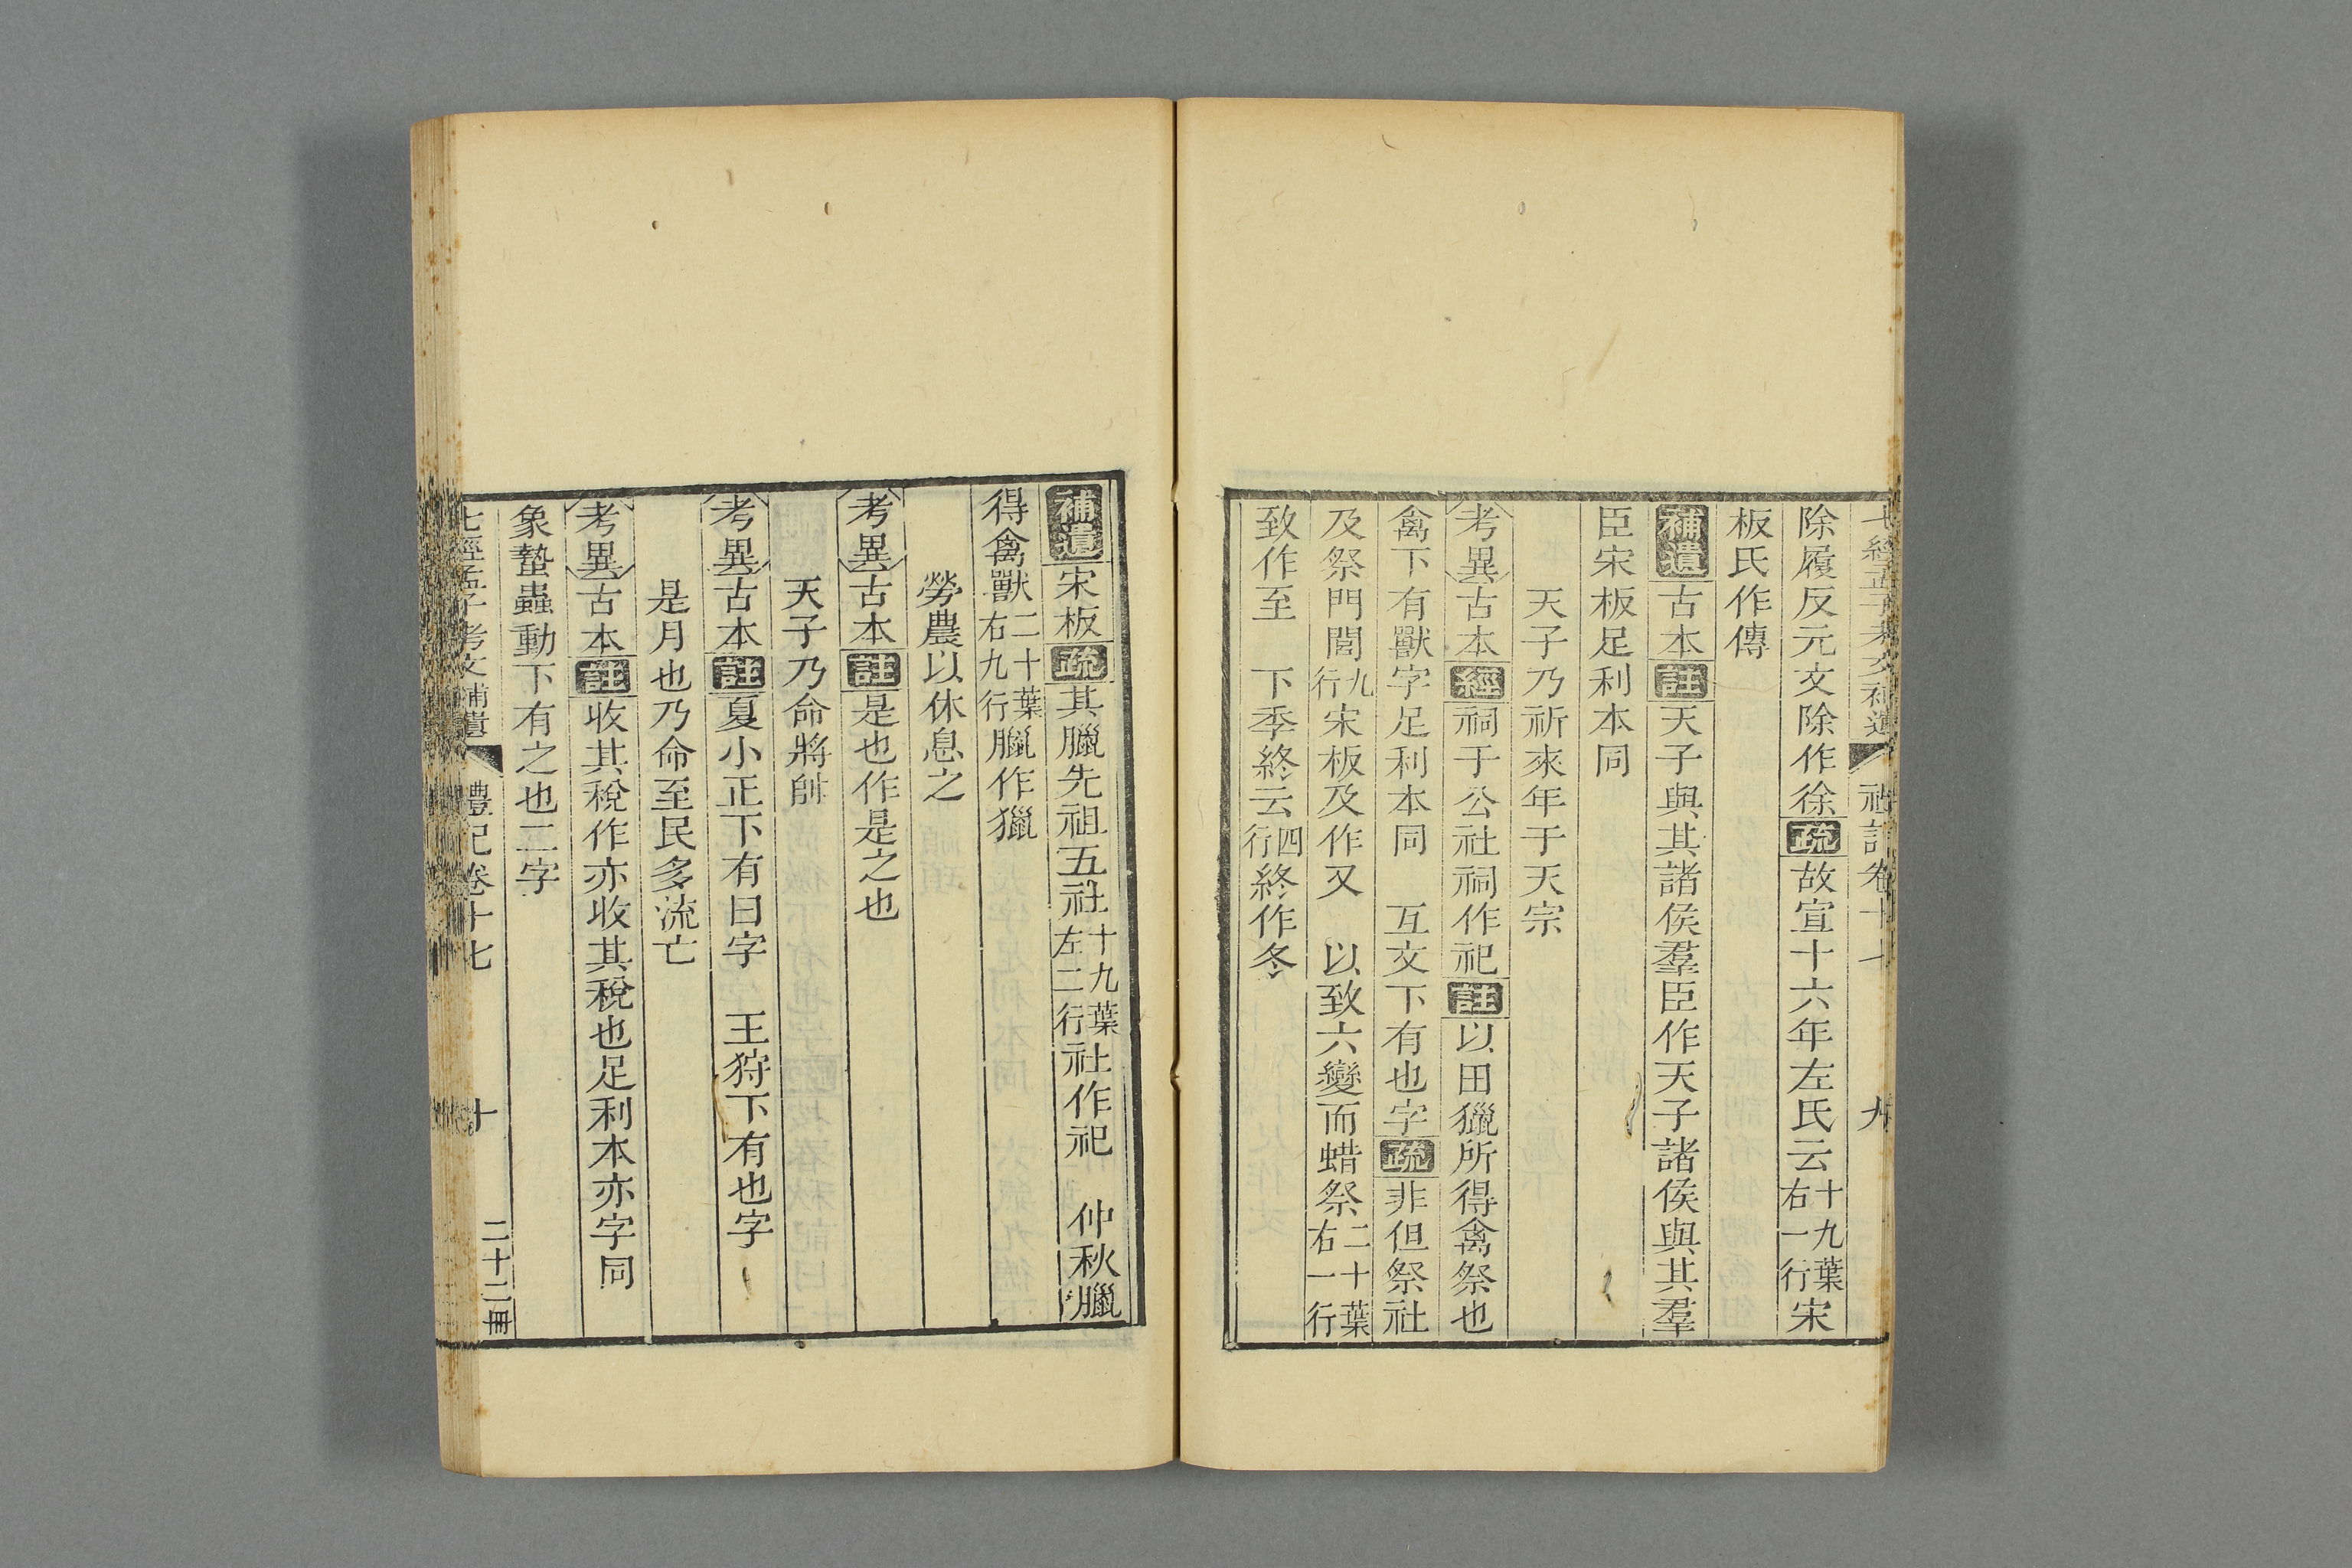 七經孟子考文補遺 禮記卷十七 九
除履反元文除作徐疏故宣十六年左氏云十九葉右一行宋
板氏作傳
補遺古本註天子與其諸侯羣臣作天子諸侯與其羣
臣宋板足利本同
天子乃祈來年于天宗
考異古本經祠于公社祠作祀註以田獵所得禽祭也
禽下有獸字足利本同 互文下有也字疏非但祭社
及祭門閭九行宋板及作又 以致六變而蜡祭二十葉右一行
致作至 下季終云四行終作冬
補遺宋板疏其臘先祖五社十九葉左二行社作祀 仲秋臘
得禽獸二十葉右九行臘作獵
勞農以休息之
考異古本註是也作是之也
天子乃命將帥
考異古本註夏小正下有曰字 王狩下有也字
是月也乃命至民多流亡
考異古本註收其稅作亦收其稅也足利本亦字同
象蟄蟲動下有之也二字
七經孟子考文補遺 禮記卷十七 十 二十二冊